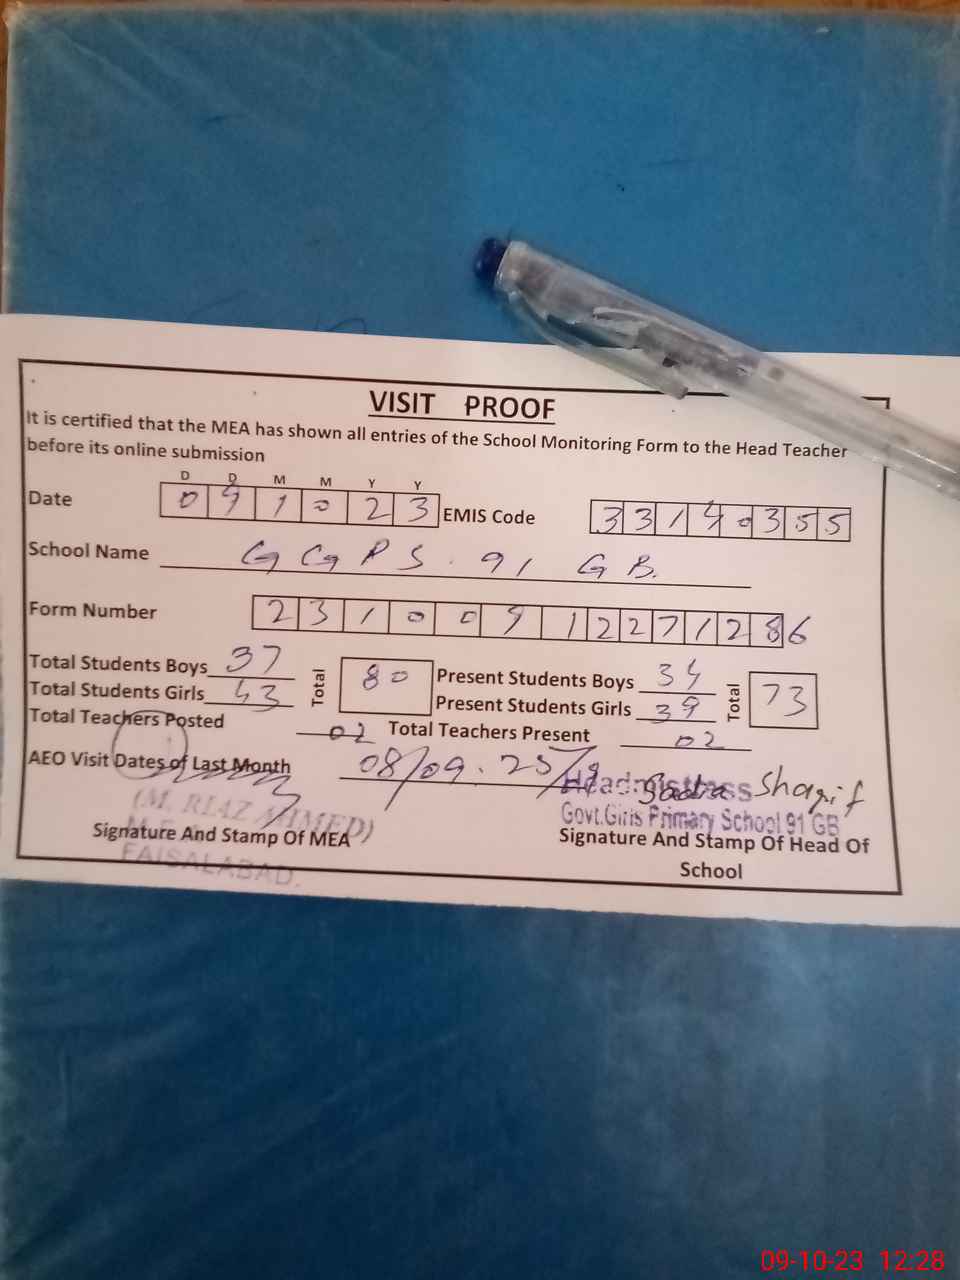 VISIT PROOF
It is certified that the MEA has shown all entries of the School Monitoring Form to the Head Teacher
before its online submission
D D M M Y Y
Date 0 9 1 0 2 3 EMIS Code 3 3 1 4 0 3 5 5
School Name GGPS. 91 GB.
Form Number 2 3 1 0 0 9 1 2 2 7 1 2 8 6
Total Students Boys 37 Total 80 Present Students Boys 34 Total 73
Total Students Girls 43 Present Students Girls 39
Total Teachers Posted 02 Total Teachers Present 02
AEO Visit Dates of Last Month 08/09. 25/9
Headmistress Sharif
(M. RIAZ AHMED) Govt.Girls Primary School 91 GB
Signature And Stamp Of MEA Signature And Stamp Of Head Of
FAISALABAD. School
09-10-23 12:28